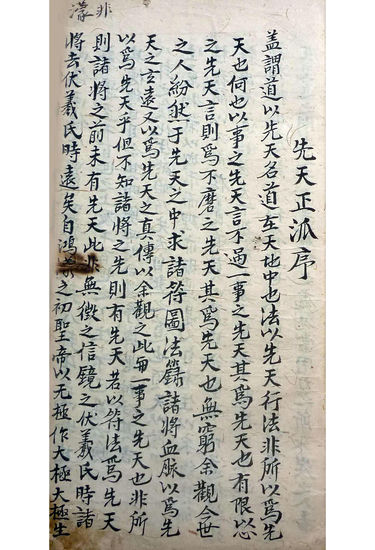 先天正派序
盖謂道以先天名道在天地中也法以先天行法非所以爲先
天也何也以事之先天言不過一事之先天其爲先天也有限以心
之先天言則爲不磨之先天其爲先天也無窮余觀今世
之人紛然于先天之中求諸符圖法籙諸將血脉以爲先
天之玄遠又以爲先天之真傳以余觀之此一事之先天也非所
以爲先天乎但不知諸將之先則有先天若以符法爲先天
非
則諸將之前未有先天此無徵之信鏡之伏羲氏時諸
濛
將去伏羲氏時遠矣自鴻之初聖帝以无極作大極大極生